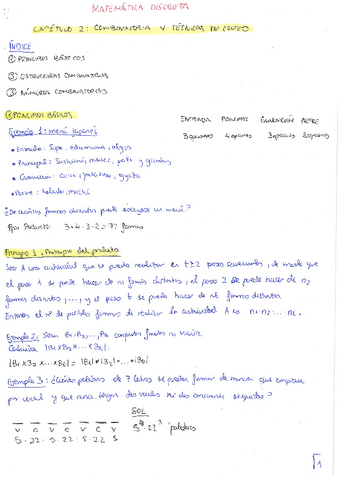 MATEMÁTICA DISCRETA
CAPÍTULO 2: COMBINATORIA Y TÉCNICAS DE CONTEO
ÍNDICE
① PRINCIPIOS BÁSICOS
② ESTRUCTURAS COMBINATORIAS
③ NÚMEROS COMBINATORIOS
① PRINCIPIOS BÁSICOS
ENTRADA PRINCIPAL GUARNICIÓN POSTRE
Ejemplo 1: menú japonés
3 opciones 4 opciones 3 opciones 2 opciones
• Entrada: Sopa, edamame, algas
• Principal: Sashimi, maki, pollo y
• Guarnición: arroz,
• Postre: helado, mochi
¿De cuántas formas distintas puede escogerse un menú?
Ppio Producto: 3·4·3·2=72 formas
Principio 1. Principio del producto
Sea A una actividad que se puede realizar en t≥2 pasos sucesivos, de modo que
el paso 1 se puede hacer de n₁ formas distintas, el paso 2 se puede hacer de n₂
formas distintas, ..., y el paso t se puede hacer de nt formas distintas.
Entonces el nº de posibles formas de realizar la actividad A es n₁·n₂·...·nt.
Ejemplo 2: Sean B₁, B₂, ..., Bt conjuntos finitos no vacíos.
Calcular |B₁×B₂×...×Bt|.
|B₁×B₂×...×Bt| = |B₁|·|B₂|·...·|Bt|
Ejemplo 3: ¿Cuántas palabras de 7 letras se pueden formar de manera que empiecen
por vocal y que nunca tengan dos vocales ni dos consonantes seguidas?
SOL
V C V C V C V 5⁴·22³ palabras
5·22·5·22·5·22·5
√1